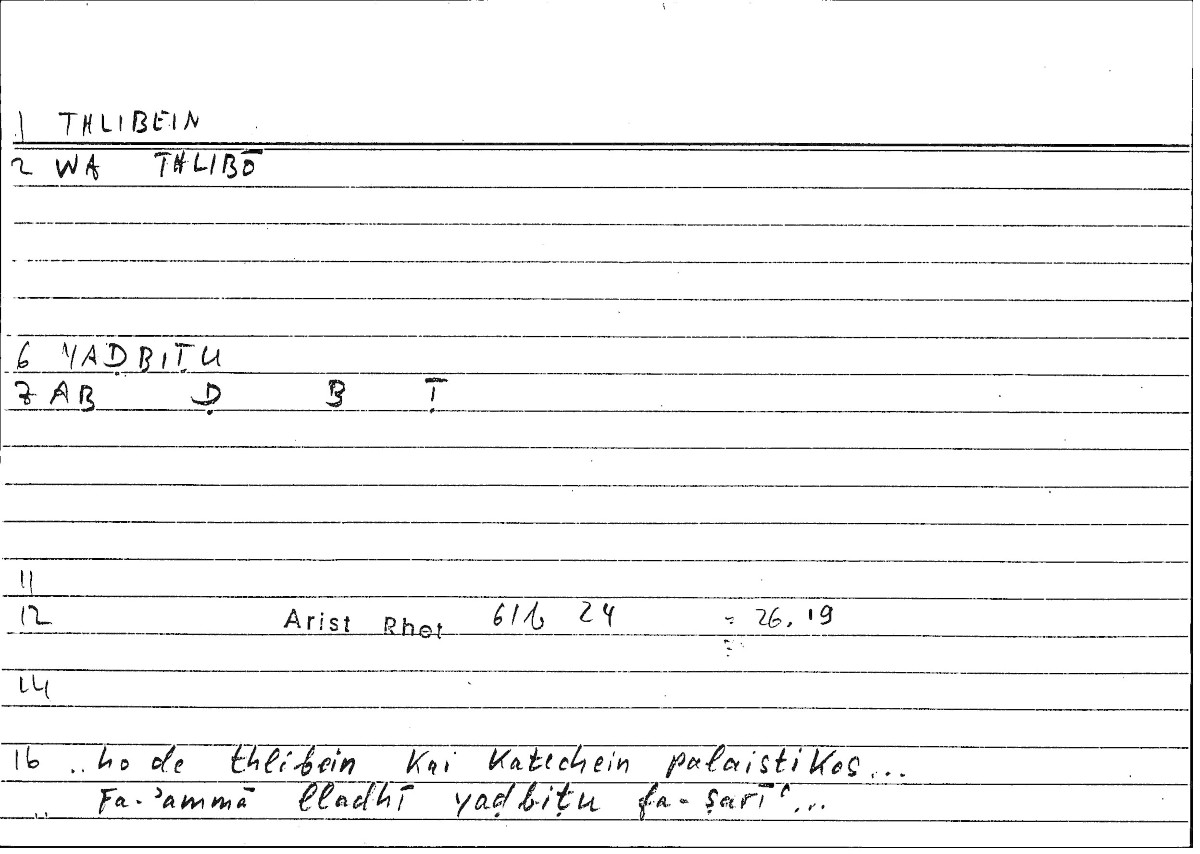 1 THLIBEIN
2 WA THLIBŌ
6 YAḌBIṬU
7 AB Ḍ B Ṭ
11
12 Arist Rhet 61b 24 = 26,19
14
16 ..ho de thlibein kai katechein palaistikos...
Fa-ʾammā lladhī yaḍbiṭu fa-ṣarīʿ...